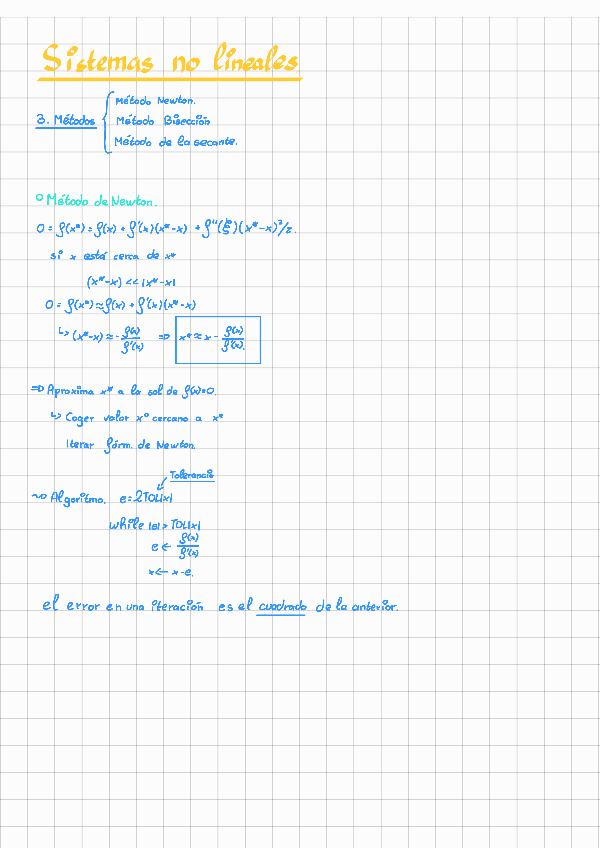 Sistemas no lineales
3. Métodos { Método Newton.
Método Bisección
Método de la secante.
○ Método de Newton.
0 = f(x*) = f(x) + f'(x)(x*-x) + f''(ξ)(x*-x)²/2.
si x está cerca de x*
(x*-x) << |x*-x|
0 = f(x*) ≈ f(x) + f'(x)(x*-x)
↳ (x*-x) ≈ - f(x)/f'(x) ⇒ x* ≈ x - f(x)/f'(x).
⇒ Aproxima x* a la sol de f(x)=0.
↳ Coger valor x⁰ cercano a x*
Iterar fórm. de Newton.
Tolerancia
~> Algoritmo. e = 2TOL|x|
while |e| > TOL|x|
e ← f(x)/f'(x)
x ← x-e.
el error en una iteración es el cuadrado de la anterior.